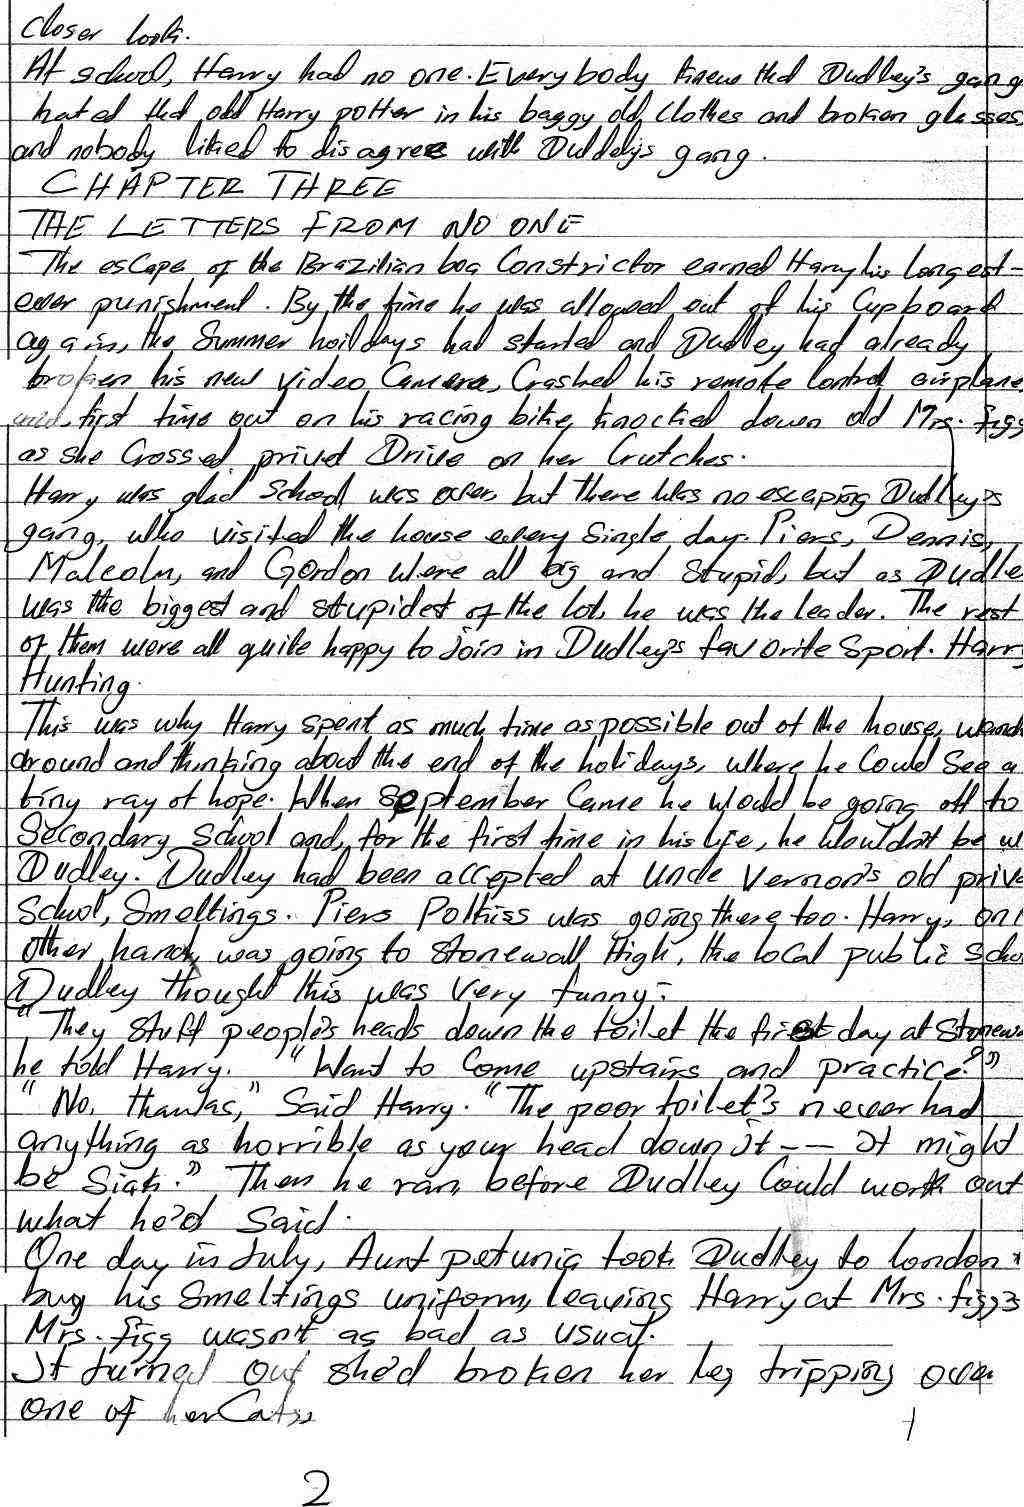 closer look.
At school, Harry had no one. Everybody knew that Dudley's gang
hated that odd Harry potter in his baggy old clothes and broken glasses,
and nobody liked to disagree with Duddely's gang.
CHAPTER THREE
THE LETTERS FROM NO ONE
The escape of the Brazilian boa Constrictor earned Harry his longest-
ever punishment. By the time he was allowed out of his Cupboard
again, the Summer hoildays had started and Dudley had already
broken his new video Camera, Crashed his remote Control airplane,
and, first time out on his racing bike, knocked down old Mrs. figg
as she Crossed privet Drive on her Crutches.
Harry was glad School was over, but there was no escaping Dudley's
gang, who visited the house every single day. Piers, Dennis,
Malcolm, and Gordon were all big and stupid, but as Dudle
was the biggest and stupidest of the lot, he was the leader. The rest
of them were all quite happy to join in Dudley's favorite Sport. Harry
Hunting.
This was why Harry spent as much time as possible out of the house, wand
around and thinking about the end of the holidays, where he Could See a
tiny ray of hope. When September Came he would be going off to
Secondary School and, for the first time in his life, he wouldn't be w
Dudley. Dudley had been accepted at Uncle Vernon's old priva
School, Smeltings. Piers Polkiss was going there too. Harry, on
other hand, was going to stonewall High, the local public scho
Dudley thought this was Very funny.
"They stuff people's heads down the toilet the first day at Stonew
he told Harry. "Want to Come upstairs and practice?"
"No, thanks," Said Harry. "The poor toilet's never had
anything as horrible as your head down it -- It might
be Sick." Then he ran, before Dudley Could work out
what he'd Said.
One day in July, Aunt petunia took Dudley to london t
buy his Smeltings uniform, leaving Harry at Mrs. figg's
Mrs. figg wasn't as bad as usual.
It turned out she'd broken her leg tripping over
one of her Cats,
2